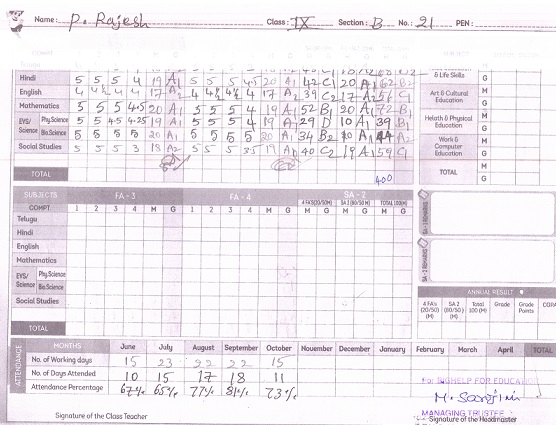 Name : P. Rajesh Class : IX Section : B No. : 21 PEN :
Hindi 5 5 5 4 19 A1 5 5 5 4.5 20 A1 42 C1 20 A1 62 B2
English 4 4½ 4 4 17 A2 4 4½ 4 4 17 A2 39 C2 17 A2 56 C1
Mathematics 5 5 5 4.5 20 A1 5 5 5 4 19 A1 52 B1 20 A1 72 B1
EVS/ Science Phy.Science 5 5 4.5 4.25 19 A1 5 5 5 4 19 A1 29 D 10 A1 39 B1
Bio.Science 5 5 5 5 20 A1 5 5 5 5 20 A1 34 B2 10 A1 44 A2
Social Studies 5 5 5 3 18 A2 5 5 5 3.5 19 A1 40 C2 19 A1 59 C1
TOTAL 400
& Life Skills G
Art & Cultural Education M G
Helath & Physical Education M G
Work & Computer Education M G
TOTAL M G
SUBJECTS FA - 3 FA - 4 SA - 2
COMPT. 1 2 3 4 M G 1 2 3 4 M G 4 FA'S(20/50M) SA 2 (80/50 M) TOTAL(100M)
M G M G M G
Telugu
Hindi
English
Mathematics
EVS/ Science Phy.Science
Bio.Science
Social Studies
TOTAL
SA - 1 REMARKS
SA - 2 REMARKS
ANNUAL RESULT
4 FA's (20/50) (M) SA 2 (80/50) (M) Total 100 (M) Grade Grade Points
ATTENDANCE
MONTHS June July August September October November December January February March April TOTAL
No. of Working days 15 23 22 22 15
No. of Days Attended 10 15 17 18 11
Attendance Percentage 67% 65% 77% 81% 73%
For BIGHELP FOR EDUCAT
MANAGING TRUSTEE
Signature of the Class Teacher Signature of the Headmaster